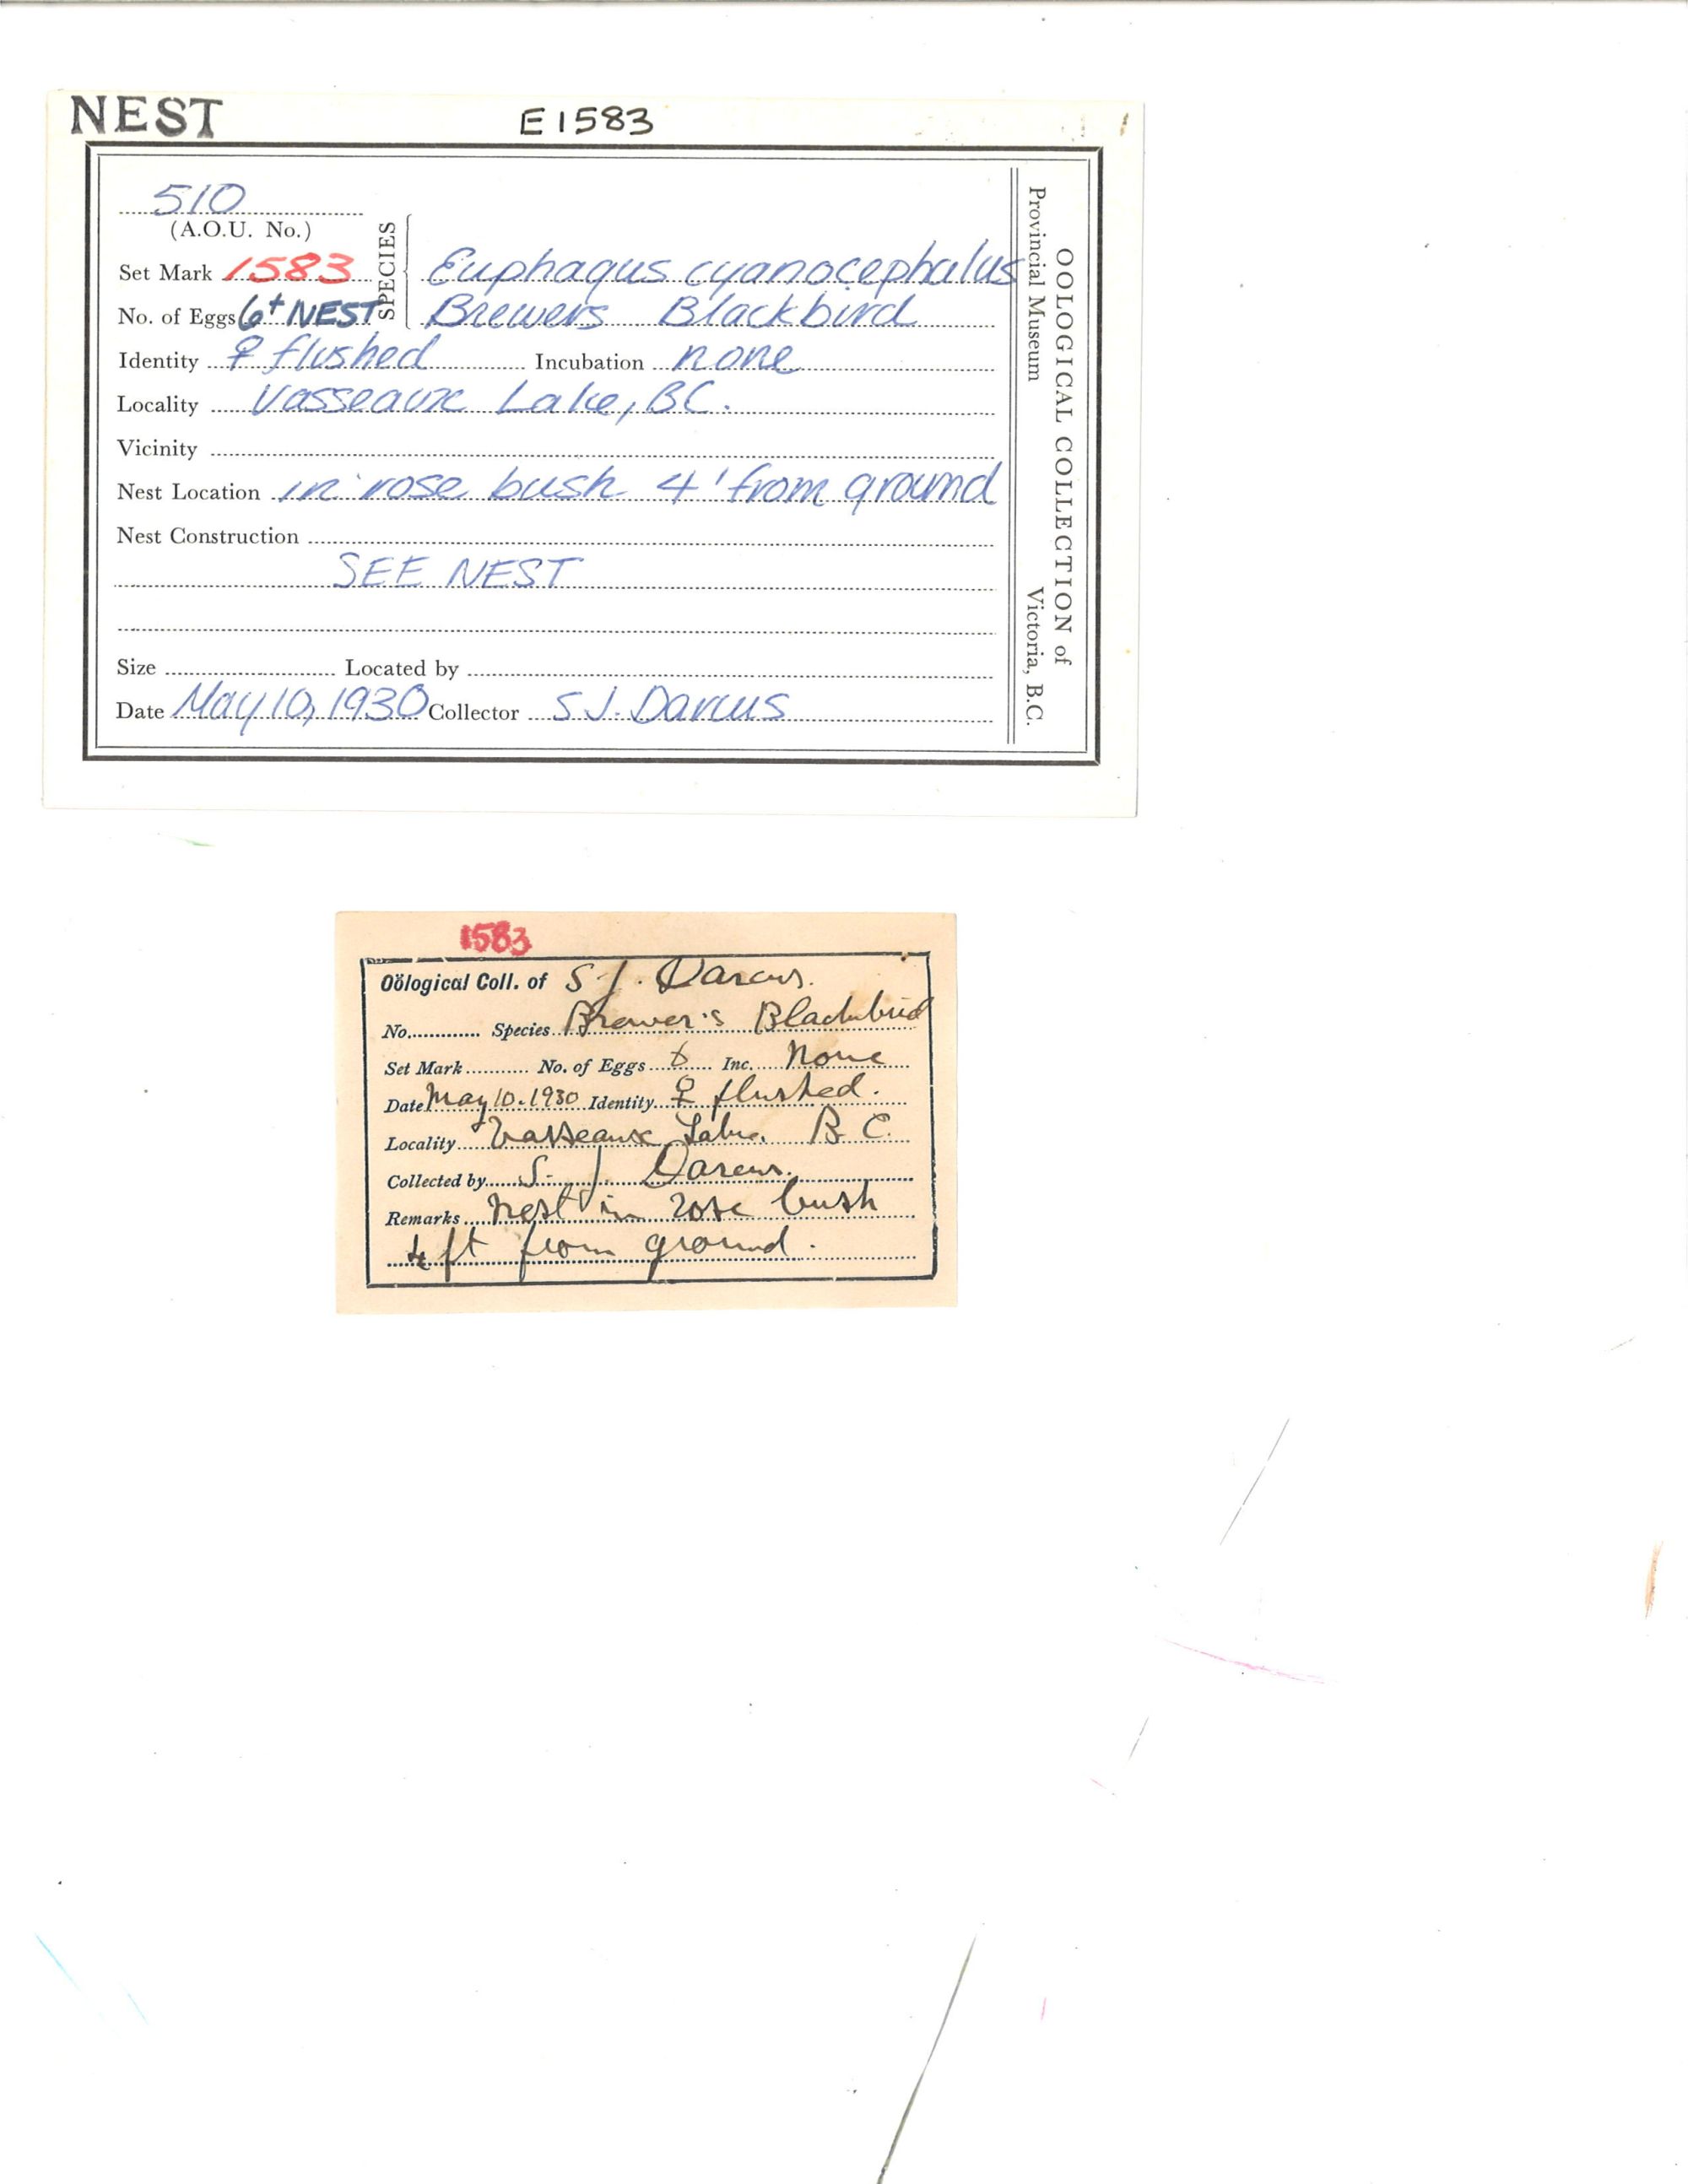 NEST
E1583
510
(A.O.U. No.)
SPECIES
Set Mark 1583
Euphagus cyanocephalus
No. of Eggs 6 + NEST
Brewers Blackbird
Identity ♀ flushed Incubation none
Locality Vasseaux Lake, BC.
Vicinity
Nest Location in rose bush 4' from ground
Nest Construction
SEE NEST
Size Located by
Date May 10, 1930 Collector S J. Darcus
OOLOGICAL COLLECTION of
Provincial Museum Victoria, B.C.
1583
Oölogical Coll. of S J. Darcus.
No. Species Brewer's Blackbird
Set Mark No. of Eggs 6 Inc. None
Date May 10. 1930 Identity ♀ flushed.
Locality Vasseaux Lake. B. C.
Collected by S. J Darcus.
Remarks Nest in rose bush
4 ft from ground.